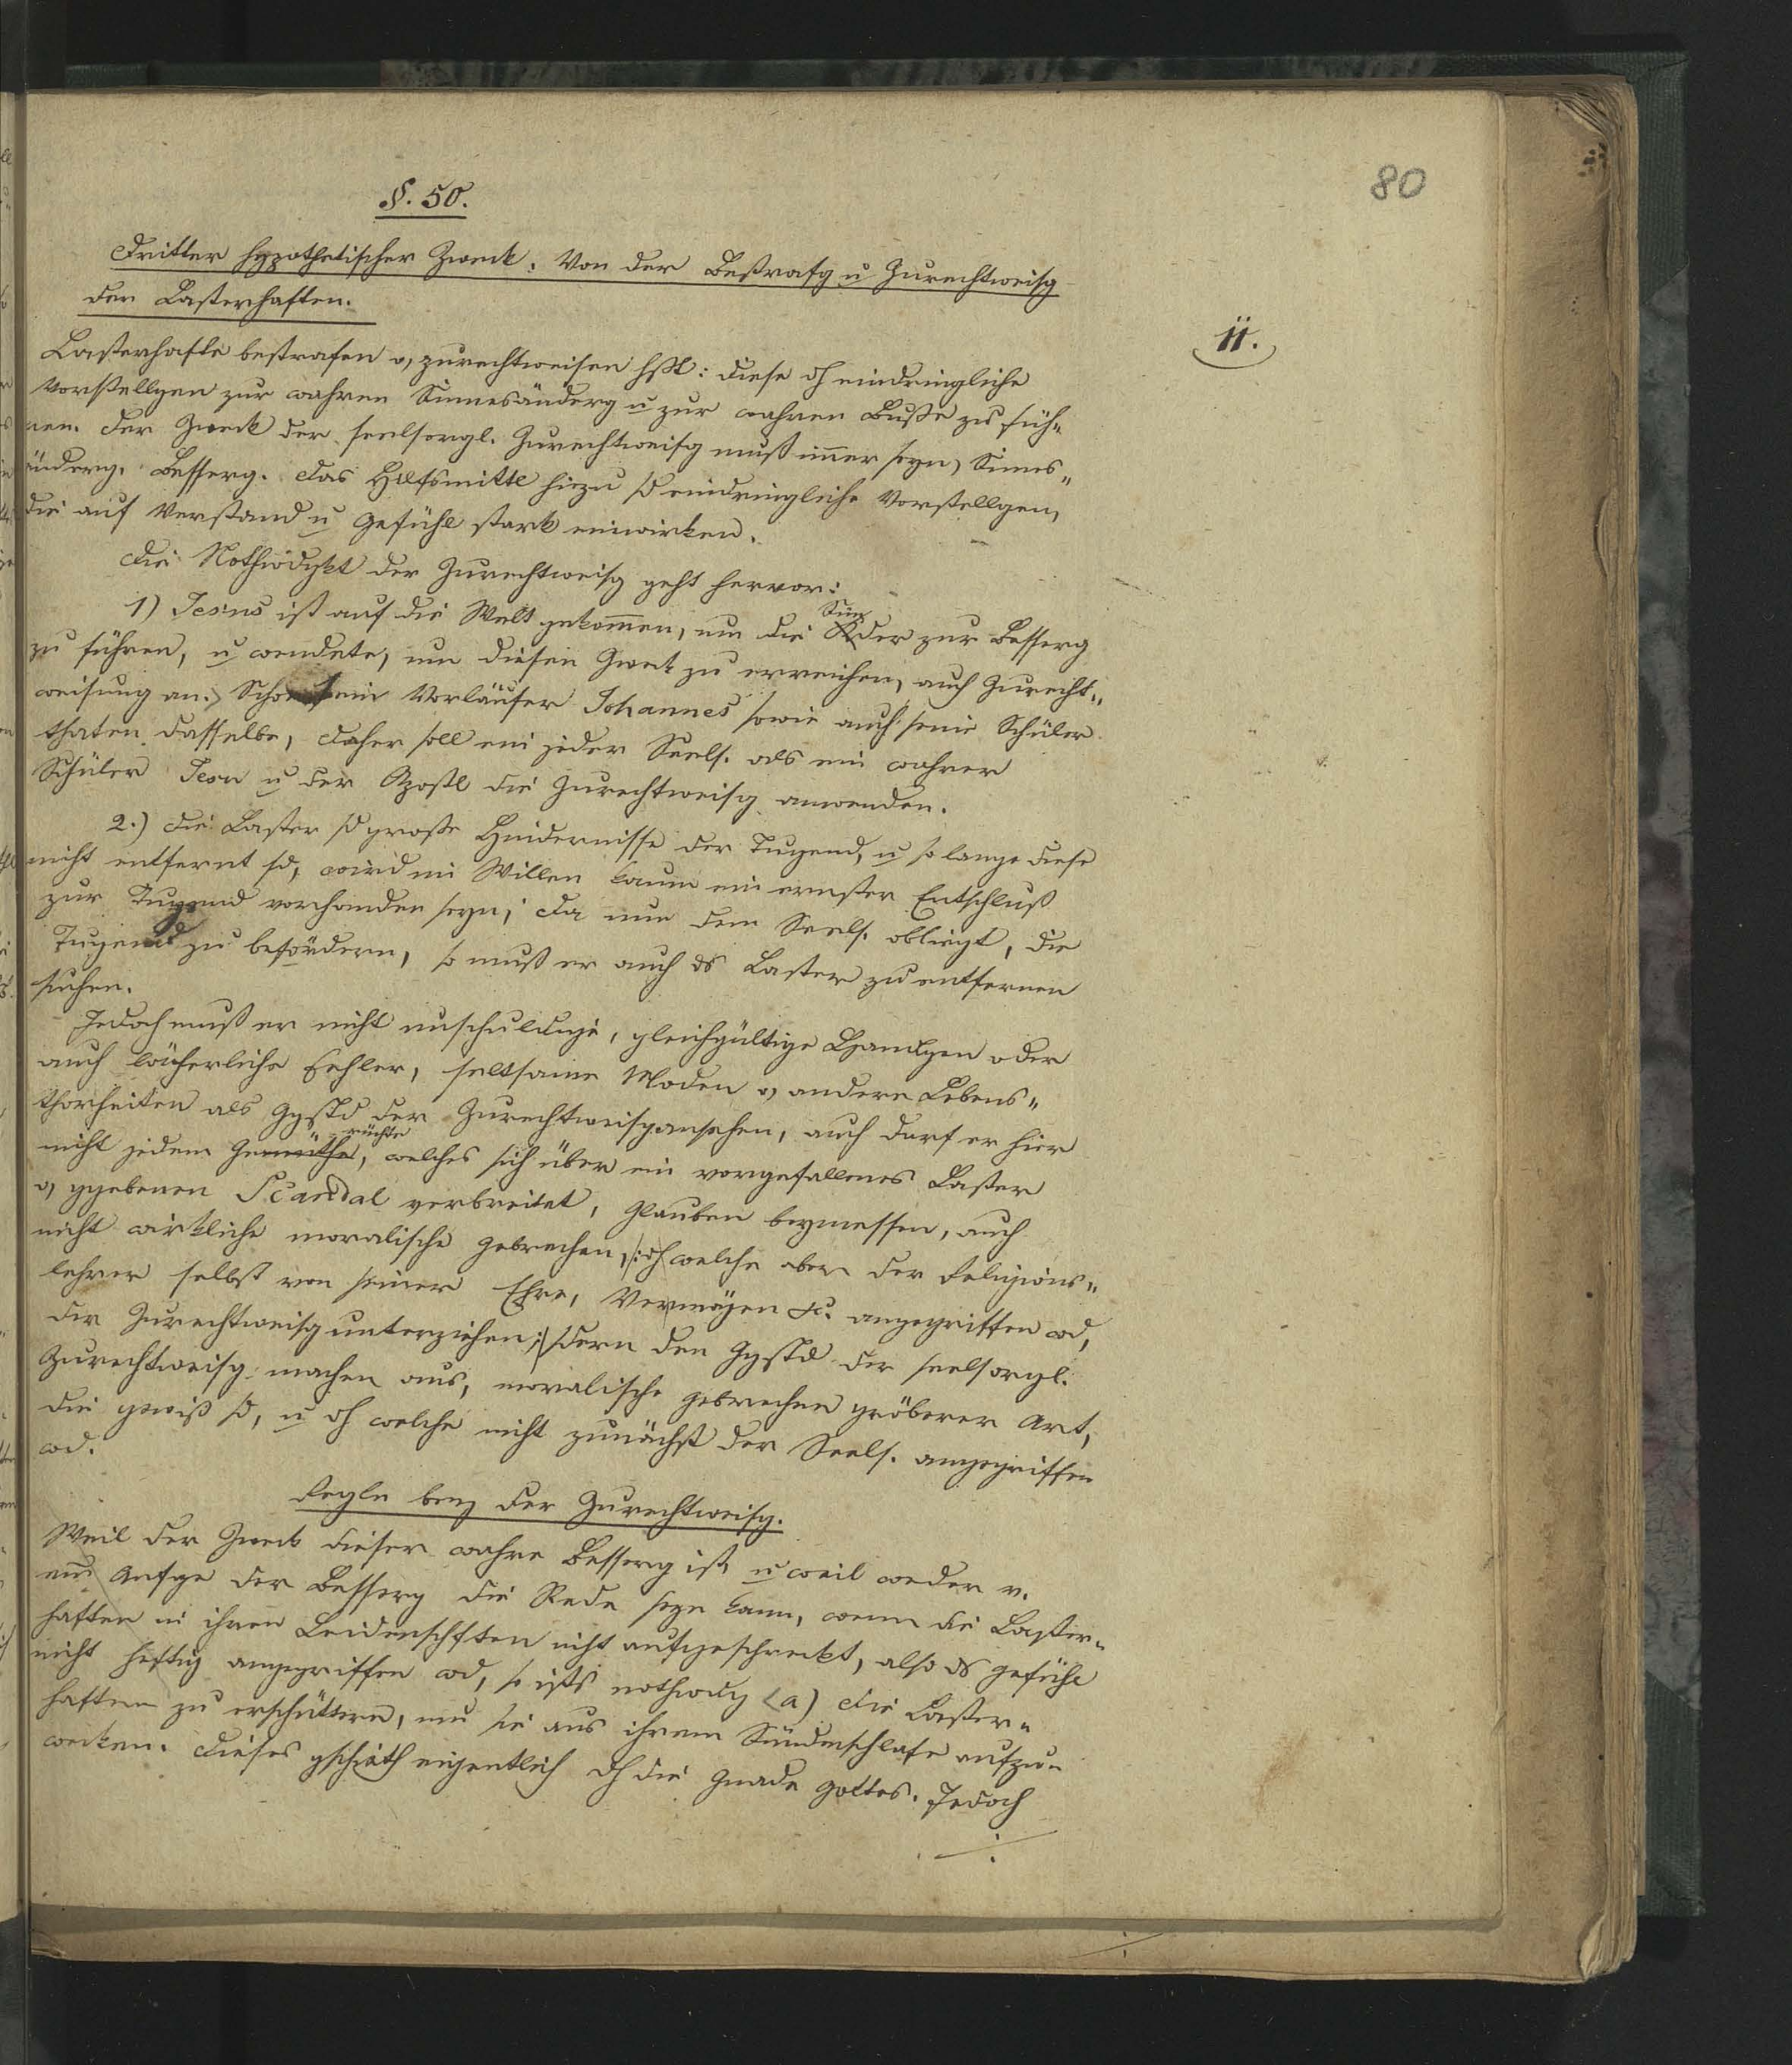 80
§. 50.
Dritter hypothetischer Zweck. Von der Bestrafg u Zurechtweisg
der Lasterhaften.
11.
Lasterhafte bestrafen u, zurechtweisen hßt: diese dh eindringliche
Vorstellgen zur wahren Sinnesänderg u zur wahren Buße zu füh„
ren. Der Zweck der seelsorgl. Zurechtweisg muß imer seyn, Sinnes„
änderg, Besserg. Das Hilfsmittl hiezu sd eindringliche Vorstellgen,
die auf Verstand u Gefühl stark einwirken.
Die Nothwdgkt der Zurechtweisg geht hervor:
1) Jesus ist auf die Welt gekommen, um die Sünder zur Besserg
zu führen, u wendete, um diesen Zwek zu erreichen, auch Zurecht„
weisung an. Schon sein Vorläufer Johannes sowie auch seine Schüler
thaten dasselbe, daher soll ein jeder Seels. als ein wahrer
Schüler Jesu u der Apostl die Zurechtweisg anwenden.
2.) Die Laster sd große Hindernisse der Tugend, u so lange diese
nicht entfernt sd, wird im Willen kaum ein ernster Entschluß
zur Tugend vorhanden seyn; da nun dem Seels. obliegt, die
Tugend zu befördern, so muß er auch ds Laster zu entfernen
suchen.
Jedoch muß er nicht unschuldige, gleichgültige Handlgen oder
auch lächerliche Fehler, seltsame Moden u, andere Lebens„
thorheiten als Ggstd der Zurechtweisg ansehen, auch darf er hier
nicht jedem Gerüchte, welches sich über ein vorgefallenes Laster
u, ggebenen Scandal verbreitet, Glauben beymessen, auch
nicht wirkliche moralische Gebrechen, /: dh welche aber der Religions„
lehrer selbst von seiner Ehre, Vermögen &c. angegriffen wd,
der Zurechtweisg unterziehen :/ sdern den Ggstd der seelsorgl.
Zurechtweisg machen aus, moralische Gebrechen gröberer Art,
die gewiß sd, u dh welche nicht zunächst der Seels. angegriffen
wd.
Regln bey der Zurechtweisg.
Weil der Zweck dieser wahre Besserg ist, u weil weder v.
ein Anfge der Besserg die Rede seyn kann, wenn die Laster„
haften in ihren Leidenschften nicht aufgeschreckt, also ds Gefühl
nicht heftig angegriffen wd, so ists nothwdg (a) die Laster„
haften zu erschüttern, um sie aus ihrem Sündenschlafe aufzu„
wecken. Dieses gschieht eigentlich dh die Gnade Gottes. Jedoch
./.